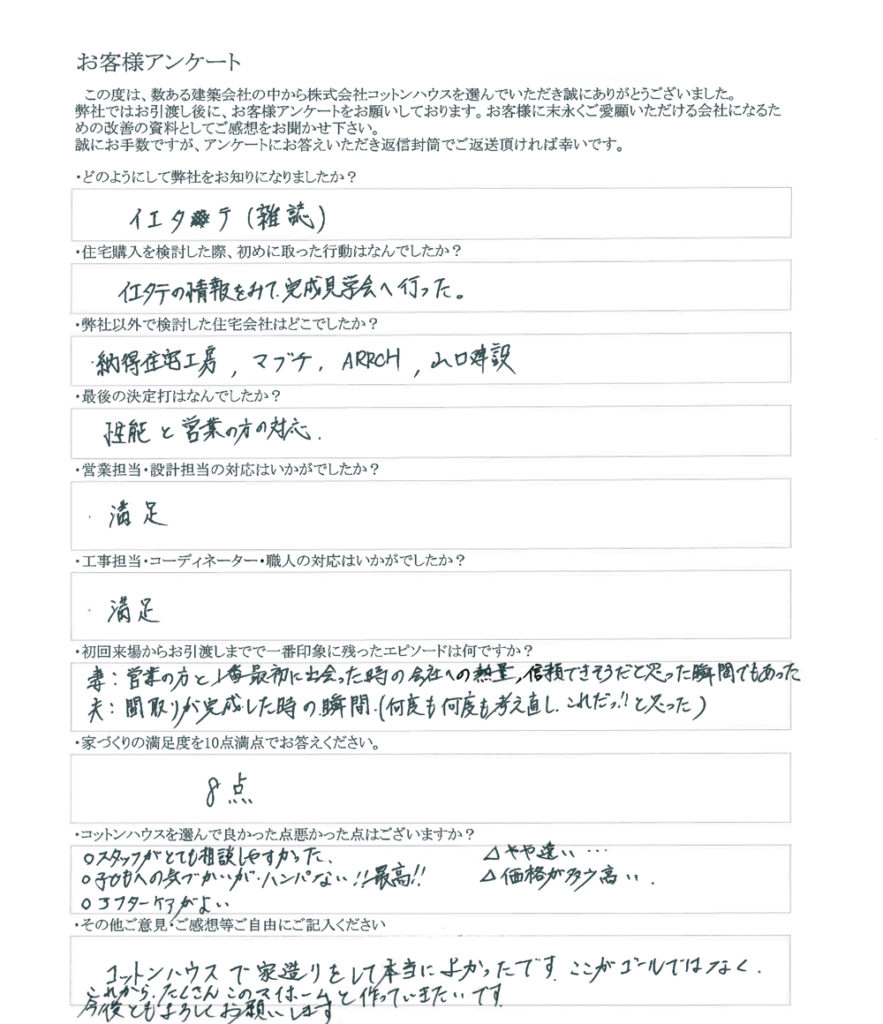 お客様アンケート
この度は、数ある建築会社の中から株式会社コットンハウスを選んでいただき誠にありがとうございました。
弊社ではお引渡し後に、お客様アンケートをお願いしております。お客様に末永くご愛顧いただける会社になるた
めの改善の資料としてご感想をお聞かせ下さい。
誠にお手数ですが、アンケートにお答えいただき返信封筒でご返送頂ければ幸いです。
・どのようにして弊社をお知りになりましたか？
イエタテ(雑誌)
・住宅購入を検討した際、初めに取った行動はなんでしたか？
イエタテの情報をみて、完成見学会へ行った。
・弊社以外で検討した住宅会社はどこでしたか？
・納得住宅工房, マブチ, ARRCH, 山口建設
・最後の決定打はなんでしたか？
性能と営業の方の対応.
・営業担当・設計担当の対応はいかがでしたか？
・満足
・工事担当・コーディネーター・職人の対応はいかがでしたか？
・満足
・初回来場からお引渡しまでで一番印象に残ったエピソードは何ですか？
妻:営業の方と1番最初に出会った時の会社への熱量,信頼できそうだと思った瞬間でもあった
夫:間取りが完成した時の瞬間.(何度も何度も考え直し、これだっ!!と思った)
・家づくりの満足度を10点満点でお答えください。
8点
・コットンハウスを選んで良かった点悪かった点はございますか？
○スタッフがとても相談しやすかった、 △やや遠い…
○子どもへの気づかいが、ハンパない!!最高!! △価格が多少高い.
○アフターケアがよい
・その他ご意見・ご感想等ご自由にご記入ください
コットンハウスで家造りをして本当によかったです。ここがゴールではなく、
これから、たくさんこのマイホームと作っていきたいです
今後ともよろしくお願いします